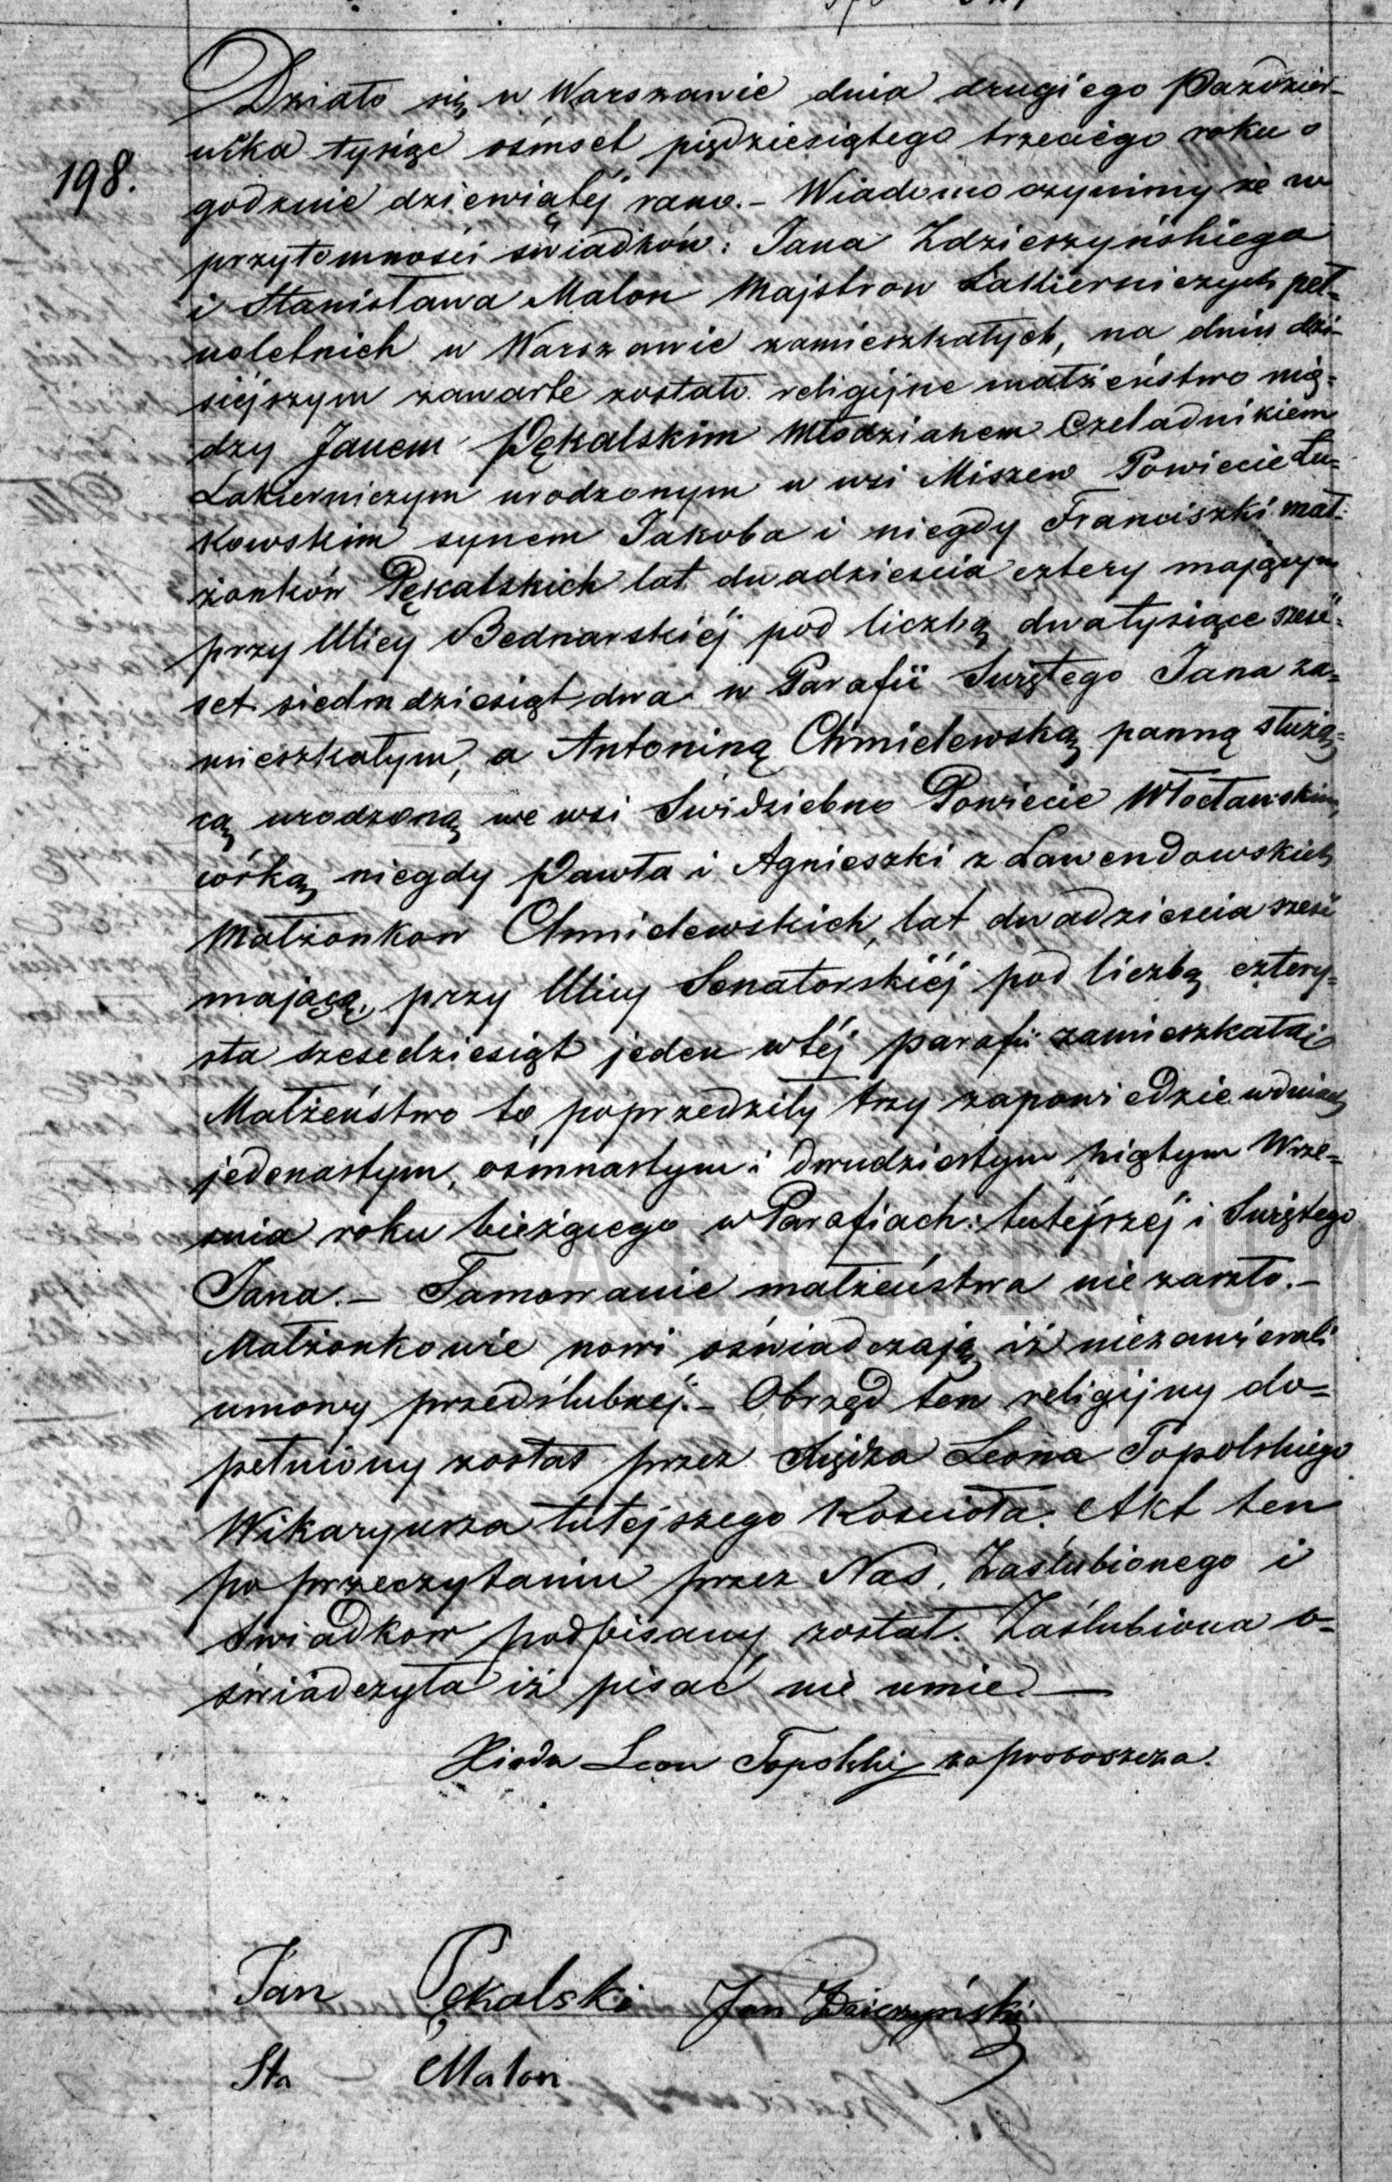 198.
Działo się w Warszawie dnia drugiego Paździer-
nika tysiąc ośmset piędziesiątego trzeciego roku o
godzinie dziewiątéj rano. – Wiadomo czynimy że w
przytomności świadków: Jana Zdzieszyńskiego
i Stanisława Malon Majstrow Lakierniczych peł-
noletnich w Warszawie zamieszkałych, na dniu dzi-
siéjszym zawarte zostało religijne małżeństwo mię-
dzy Janem Pękalskim Młodzianem Czeladnikiem
Lakierniczym urodzonym w wsi Miszew Powiecie Łu-
kowskim synem Jakoba i niegdy Franciszki mał-
żonków Pękalskich lat dwadzieścia cztery mającym
przy Ulicy Bednarskiéj pod liczbą dwatysiące sześć-
set siedmdziesiąt dwa w Parafii Świętego Jana za-
mieszkałym, a Antoniną Chmielewską panną służą-
cą urodzoną we wsi Świdziebno Powiecie Włocławskim,
córką niegdy Pawła i Agnieszki z Lawendowskich
Małżonkow Chmielewskich, lat dwadzieścia sześć
mającą, przy Ulicy Senatorskiéj pod liczbą cztery-
sta szesedziesiąt jeden w téj parafii zamieszkałą.
Małżeństwo to poprzedziły trzy zapowiedzie w dniach
jedenastym, ośmnastym i dwudziestym piątym Wrze-
śnia roku bieżącego w Parafiach: tutéjszéj i Świętego
Jana. – Tamowanie małżeństwa nie zaszło. –
Małżonkowie nowi oświadczają iż niezawierali
umowy przedślubnéj. – Obrzęd ten religijny do-
pełniony został przez Księdza Leona Topolskiego
Wikaryusza tutejszego Kościoła. Akt ten
po przeczytaniu przez Nas, Zaślubionego i
Świadkow podpisany został. Zaślubiona o-
świadczyła iż pisać nie umie. —
Xiądz Leon Topolski za proboszcza.
Jan Pękalski Jan Zdzieszyński
Sta Malon
ARCHIWUM